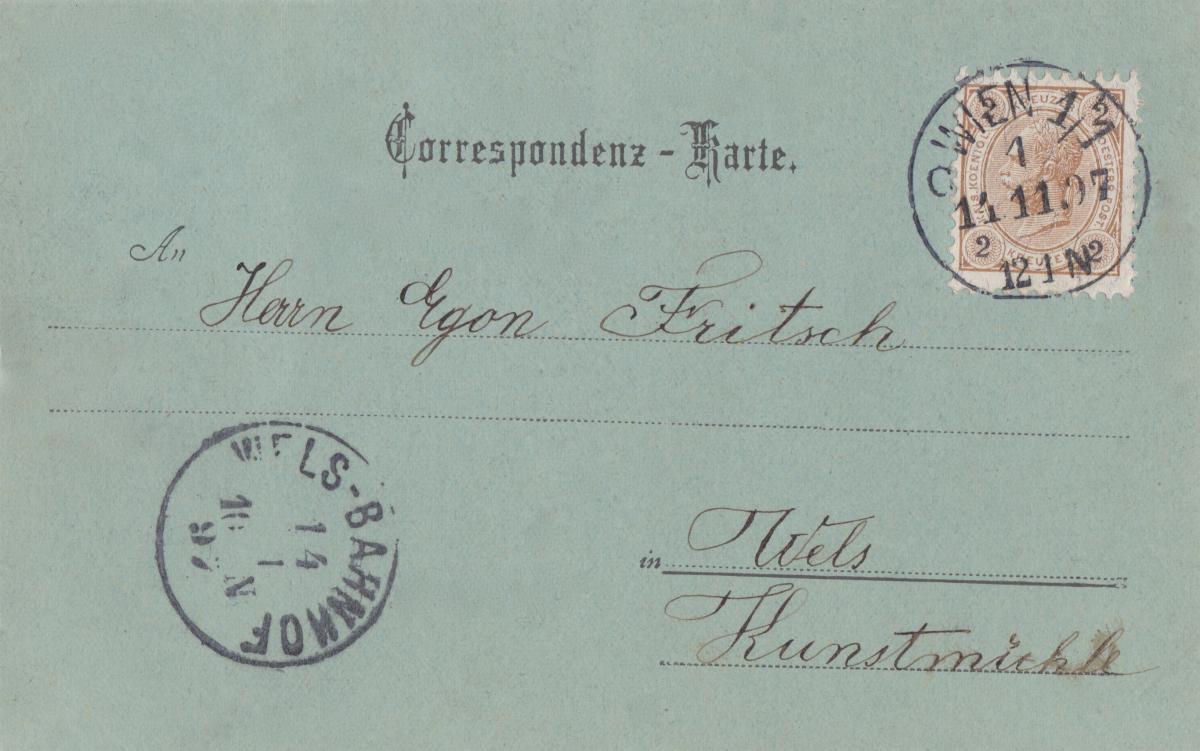 Correspondenz-Karte.
WIEN 1/1
1
11.11.97
12 1 N
2 2
2 2
KREUZER
An Herrn Egon Fritsch
WELS-BAHNHOF
14
1
97
N
in Wels
Kunstmühle